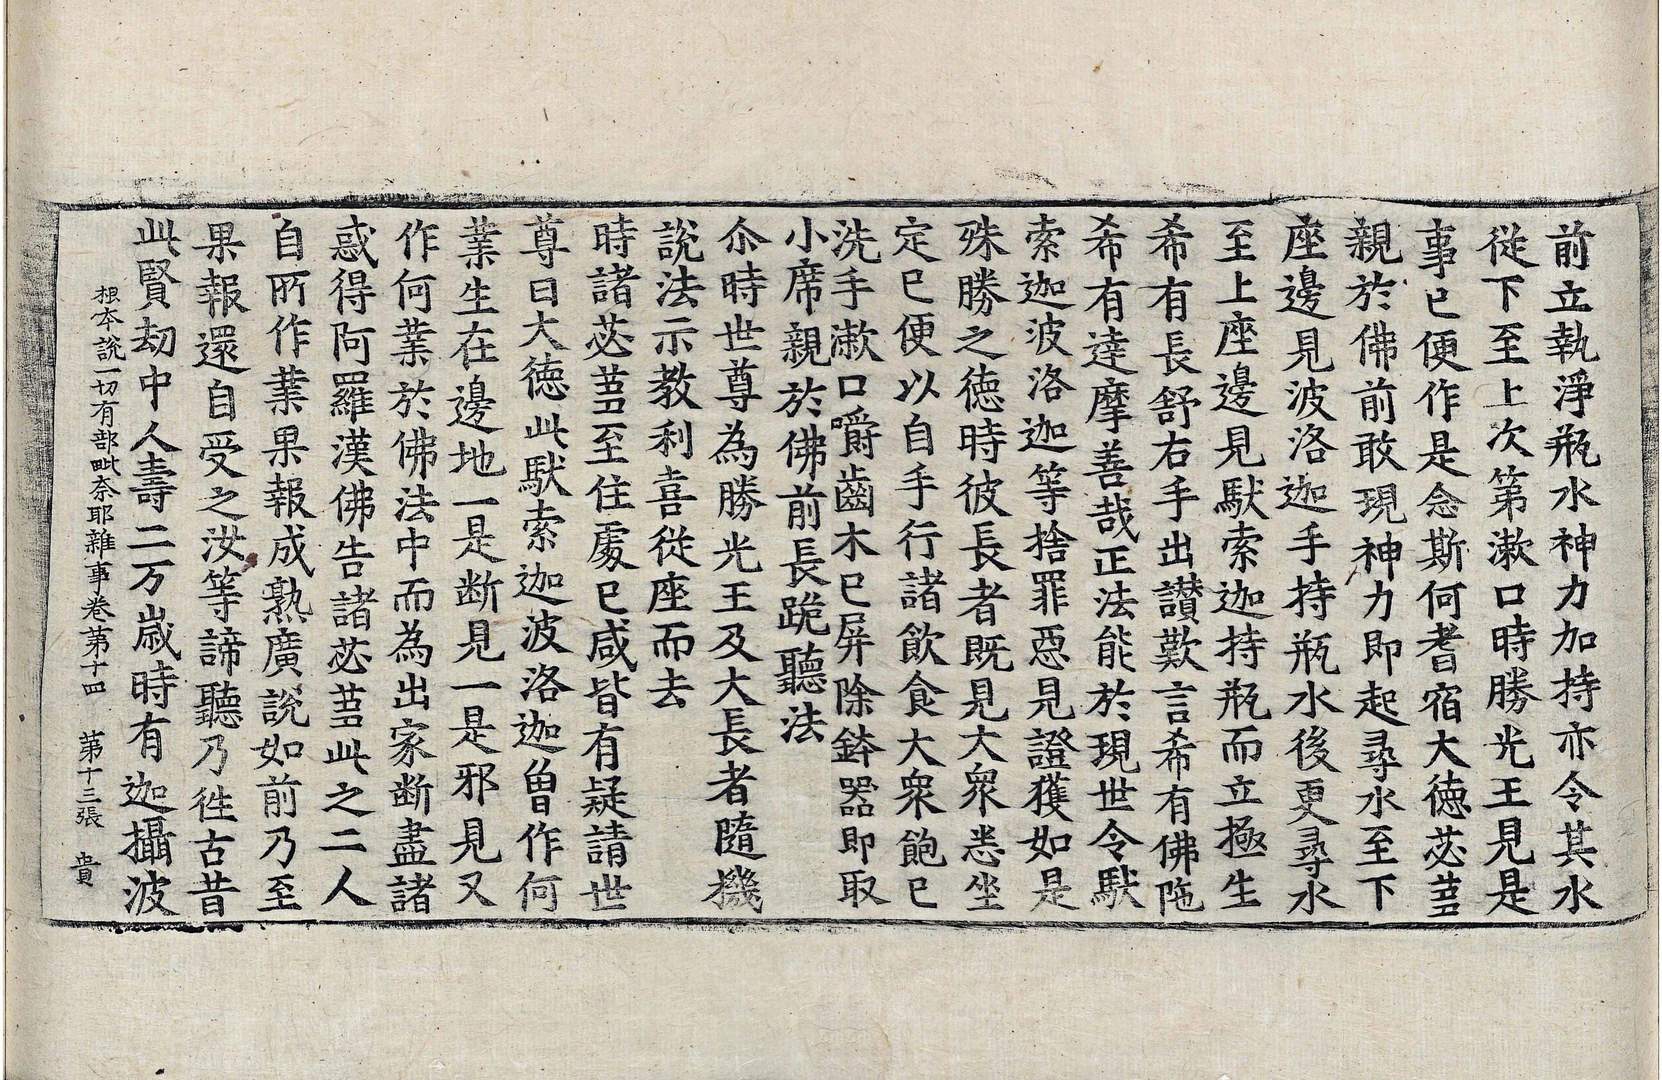 前立執淨瓶水神力加持亦令其水
從下至上次第漱口時勝光王見是
事已便作是念斯何耆宿大德苾蒭
親於佛前敢現神力即起尋水至下
座邊見波洛迦手持瓶水後更尋水
至上座邊見䭾索迦持瓶而立極生
希有長舒右手出讃歎言希有佛陁
希有達摩善哉正法能於現世令䭾
索迦波洛迦等捨罪惡見證獲如是
殊勝之德時彼長者既見大衆悉坐
定已便以自手行諸飲食大衆飽已
洗手漱口嚼齒木已屏除鉢器即取
小席親於佛前長跪聽法
尒時世尊為勝光王及大長者隨機
說法示教利喜從座而去
時諸苾蒭至住處已咸皆有疑請世
尊曰大德此䭾索迦波洛迦曾作何
業生在邊地一是断見一是邪見又
作何業於佛法中而為出家断盡諸
惑得阿羅漢佛告諸苾蒭此之二人
自所作業果報成熟廣說如前乃至
果報還自受之汝等諦聽乃徃古昔
此賢劫中人壽二万歲時有迦攝波
根本說一切有部毗奈耶雜事卷第十四 第十三張 貴